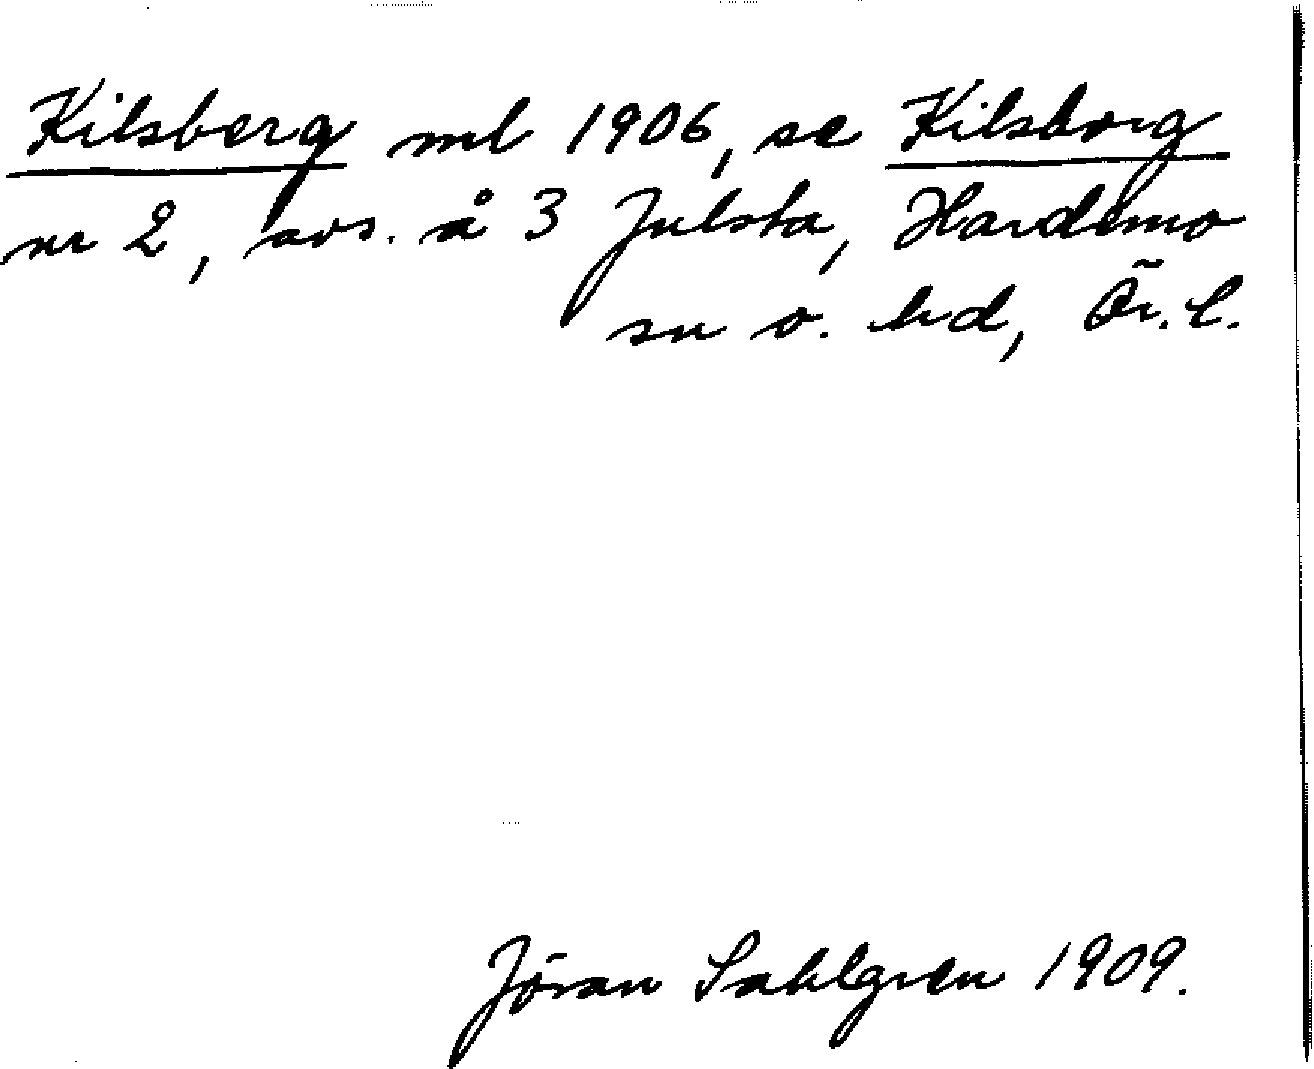 Kilsberg ml 1906, se Kilsborg
nr 2, avs. å 3 Julsta, Hardemo
sn o. hd, Ör. l.
Jöran Sahlgren 1909.